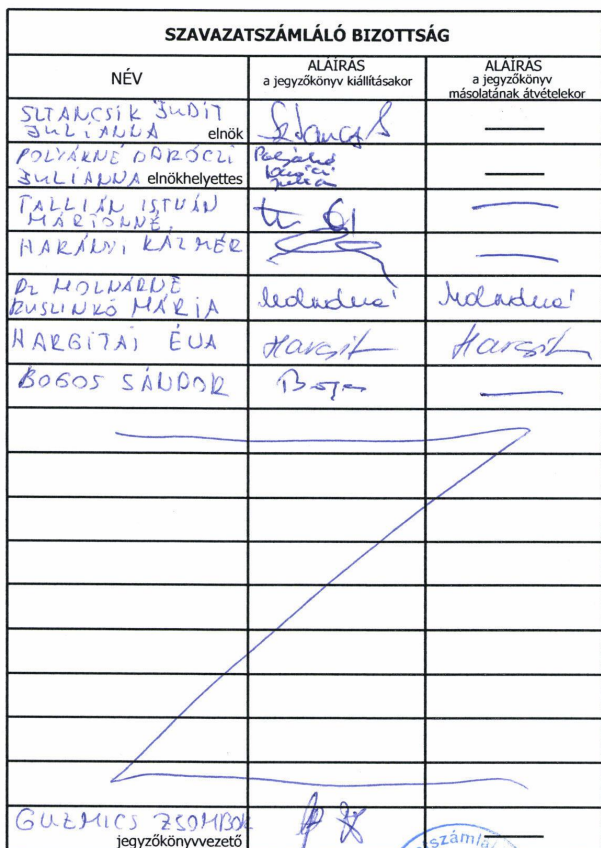 SZAVAZATSZÁMLÁLÓ BIZOTTSÁG
NÉV
ALÁÍRÁS
a jegyzőkönyv kiállításakor
ALÁÍRÁS
a jegyzőkönyv
másolatának átvételekor
SZTANCSIK JUDIT
JULIANNA elnök
POLYÁKNÉ DARÓCZI
JULIANNA elnökhelyettes
Polyákné
Daróczi
Julianna
TALLIÁN ISTVÁN
MÁRTONNÉ
HARÁNYI KÁZMÉR
Dr MOLNÁRNÉ
RUSZINKÓ MÁRIA
HARGITAI ÉVA
BOGOS SÁNDOR
GUZMICS ZSOMBOR
jegyzőkönyvvezető